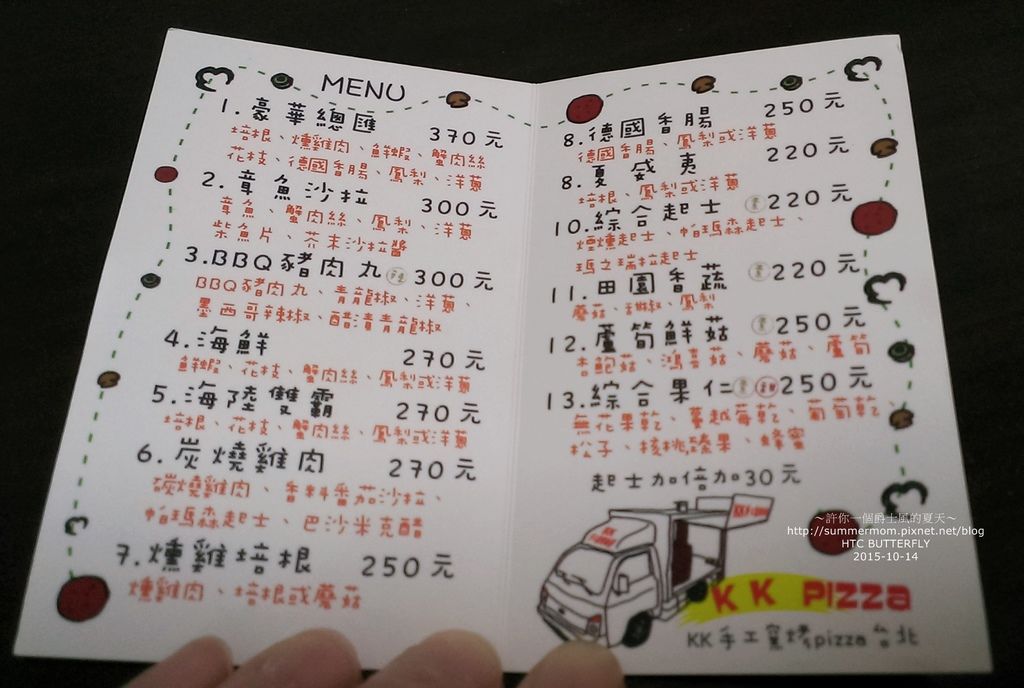 MENU
1.豪華總匯 370元
培根、燻雞肉、鮮蝦、蟹肉絲
花枝、德國香腸、鳳梨、洋蔥
2.章魚沙拉 300元
章魚、蟹肉絲、鳳梨、洋蔥
柴魚片、芥末沙拉醬
3.BBQ豬肉丸 300元
BBQ豬肉丸、青龍椒、洋蔥、
墨西哥辣椒、醋漬青龍椒
4.海鮮 270元
鮮蝦、花枝、蟹肉絲、鳳梨或洋蔥
5.海陸雙霸 270元
培根、花枝、蟹肉絲、鳳梨或洋蔥
6.炭燒雞肉 270元
碳燒雞肉、香料番茄沙拉、
帕瑪森起士、巴沙米克醋
7.燻雞培根 250元
燻雞肉、培根或蘑菇
8.德國香腸 250元
德國香腸、鳳梨或洋蔥
8.夏威夷 220元
培根、鳳梨或洋蔥
10.綜合起士 素 220元
煙燻起士、帕瑪森起士、
瑪之瑞拉起士
11.田園香蔬 素 220元
蘑菇、甜椒、鳳梨
12.蘆筍鮮菇 素 250元
杏鮑菇、鴻喜菇、蘑菇、蘆筍
13.綜合果仁 素 甜 250元
無花果乾、蔓越莓乾、葡萄乾、
松子、核桃臻果、蜂蜜
起士加倍加30元
KK PIZZA
KK手工窯烤pizza台北
～許你一個爵士風的夏天～
http://summermom.pixnet.net/blog
HTC BUTTERFLY
2015-10-14